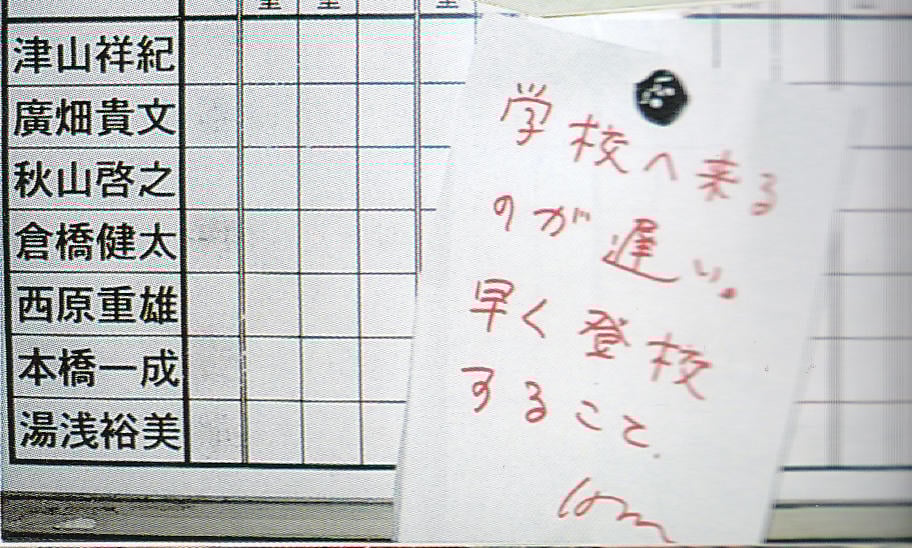 津山祥紀
廣畑貴文
秋山啓之
倉橋健太
西原重雄
本橋一成
湯浅裕美
学校へ来る
のが遅い。
早く登校
すること.